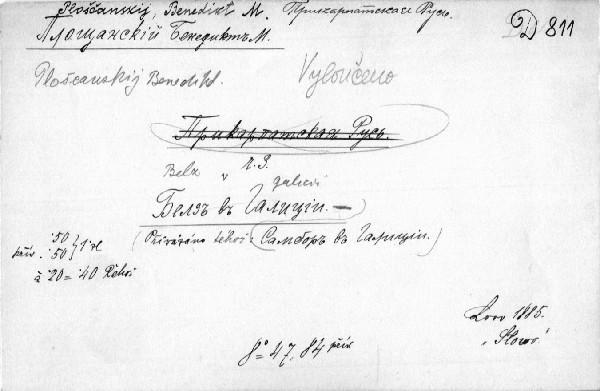 Ploščanskij, Benedikt M. Прикарпатская Русь.
Площанскій Бенедиктъ М.
D 811
Ploščanskij Benedikt.
Vyloučeno
Прикарпатская Русь.
Belz v
Белзъ въ Галиціи. —
( : Самборъ въ Галиціи.)
50
přív. 50 } 1 zl
à 20 = 40
Lvov 1885.
„Slovo“
8° 47, 84